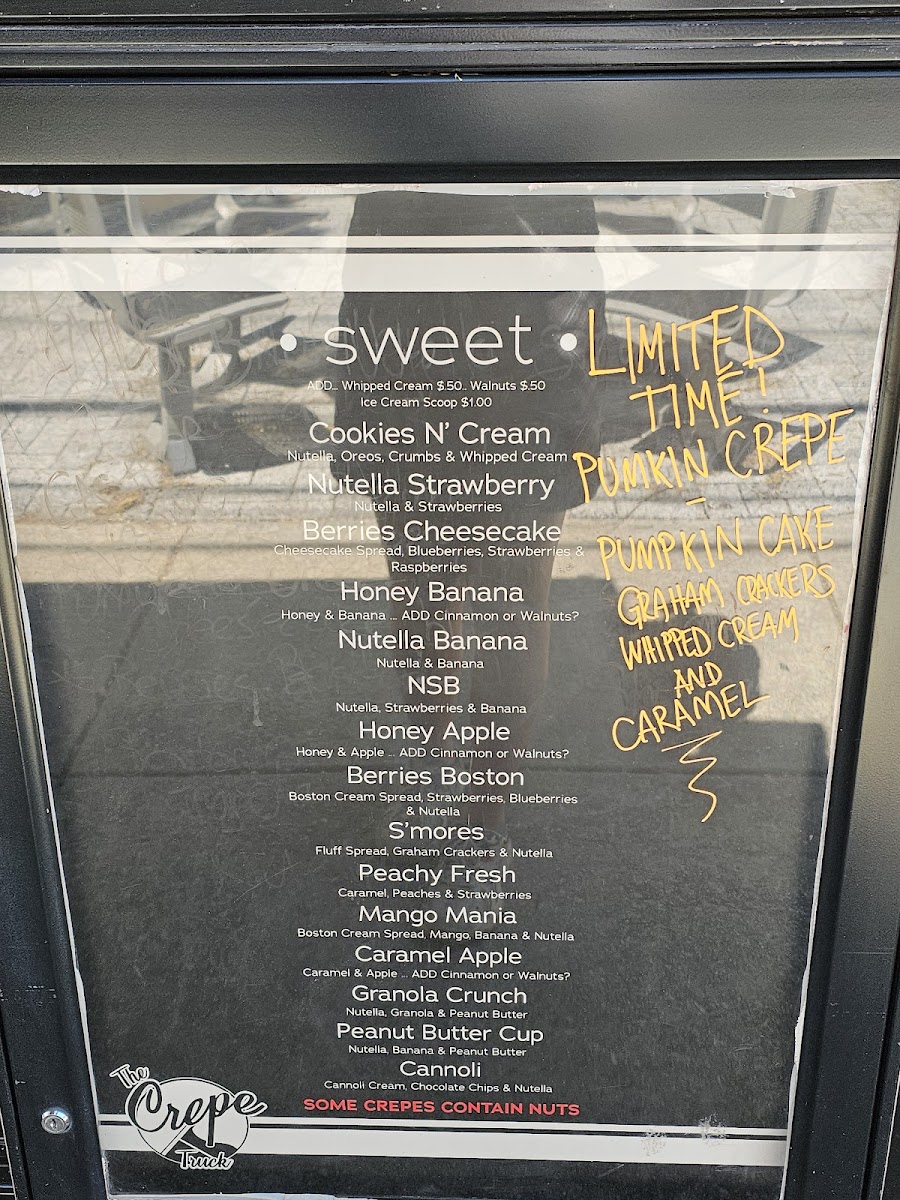 • sweet •
ADD... Whipped Cream $.50.. Walnuts $.50
Ice Cream Scoop $1.00
Cookies N' Cream
Nutella, Oreos, Crumbs & Whipped Cream
Nutella Strawberry
Nutella & Strawberries
Berries Cheesecake
Cheesecake Spread, Blueberries, Strawberries &
Raspberries
Honey Banana
Honey & Banana ... ADD Cinnamon or Walnuts?
Nutella Banana
Nutella & Banana
NSB
Nutella, Strawberries & Banana
Honey Apple
Honey & Apple ... ADD Cinnamon or Walnuts?
Berries Boston
Boston Cream Spread, Strawberries, Blueberries
& Nutella
S'mores
Fluff Spread, Graham Crackers & Nutella
Peachy Fresh
Caramel, Peaches & Strawberries
Mango Mania
Boston Cream Spread, Mango, Banana & Nutella
Caramel Apple
Caramel & Apple ... ADD Cinnamon or Walnuts?
Granola Crunch
Nutella, Granola & Peanut Butter
Peanut Butter Cup
Nutella, Banana & Peanut Butter
Cannoli
Cannoli Cream, Chocolate Chips & Nutella
SOME CREPES CONTAIN NUTS
LIMITED
TIME!
PUMKIN CREPE
-
PUMPKIN CAKE
GRAHAM CRACKERS
WHIPPED CREAM
AND
CARAMEL
The
Crepe
Truck